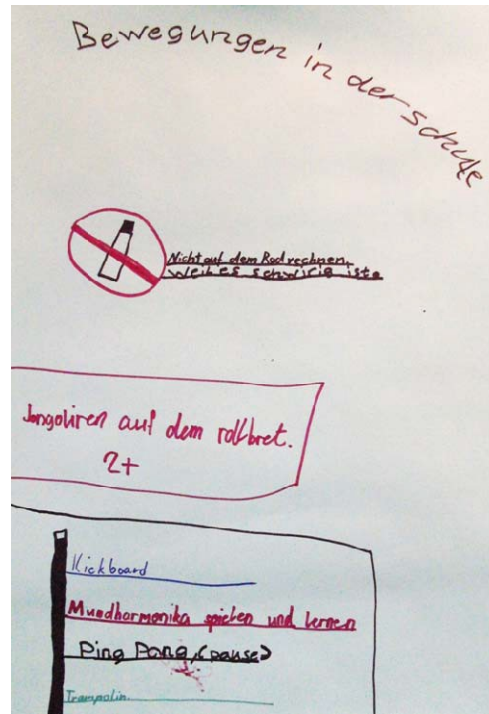 Bewegungen in der schule
Nicht auf dem Rad rechnen.
Weil es schwirig iste
Jongoliren auf dem rollbret.
2+
Kickboard
Mundharmonika spielen und lernen
Ping Pong, (pause)
Trampolin.